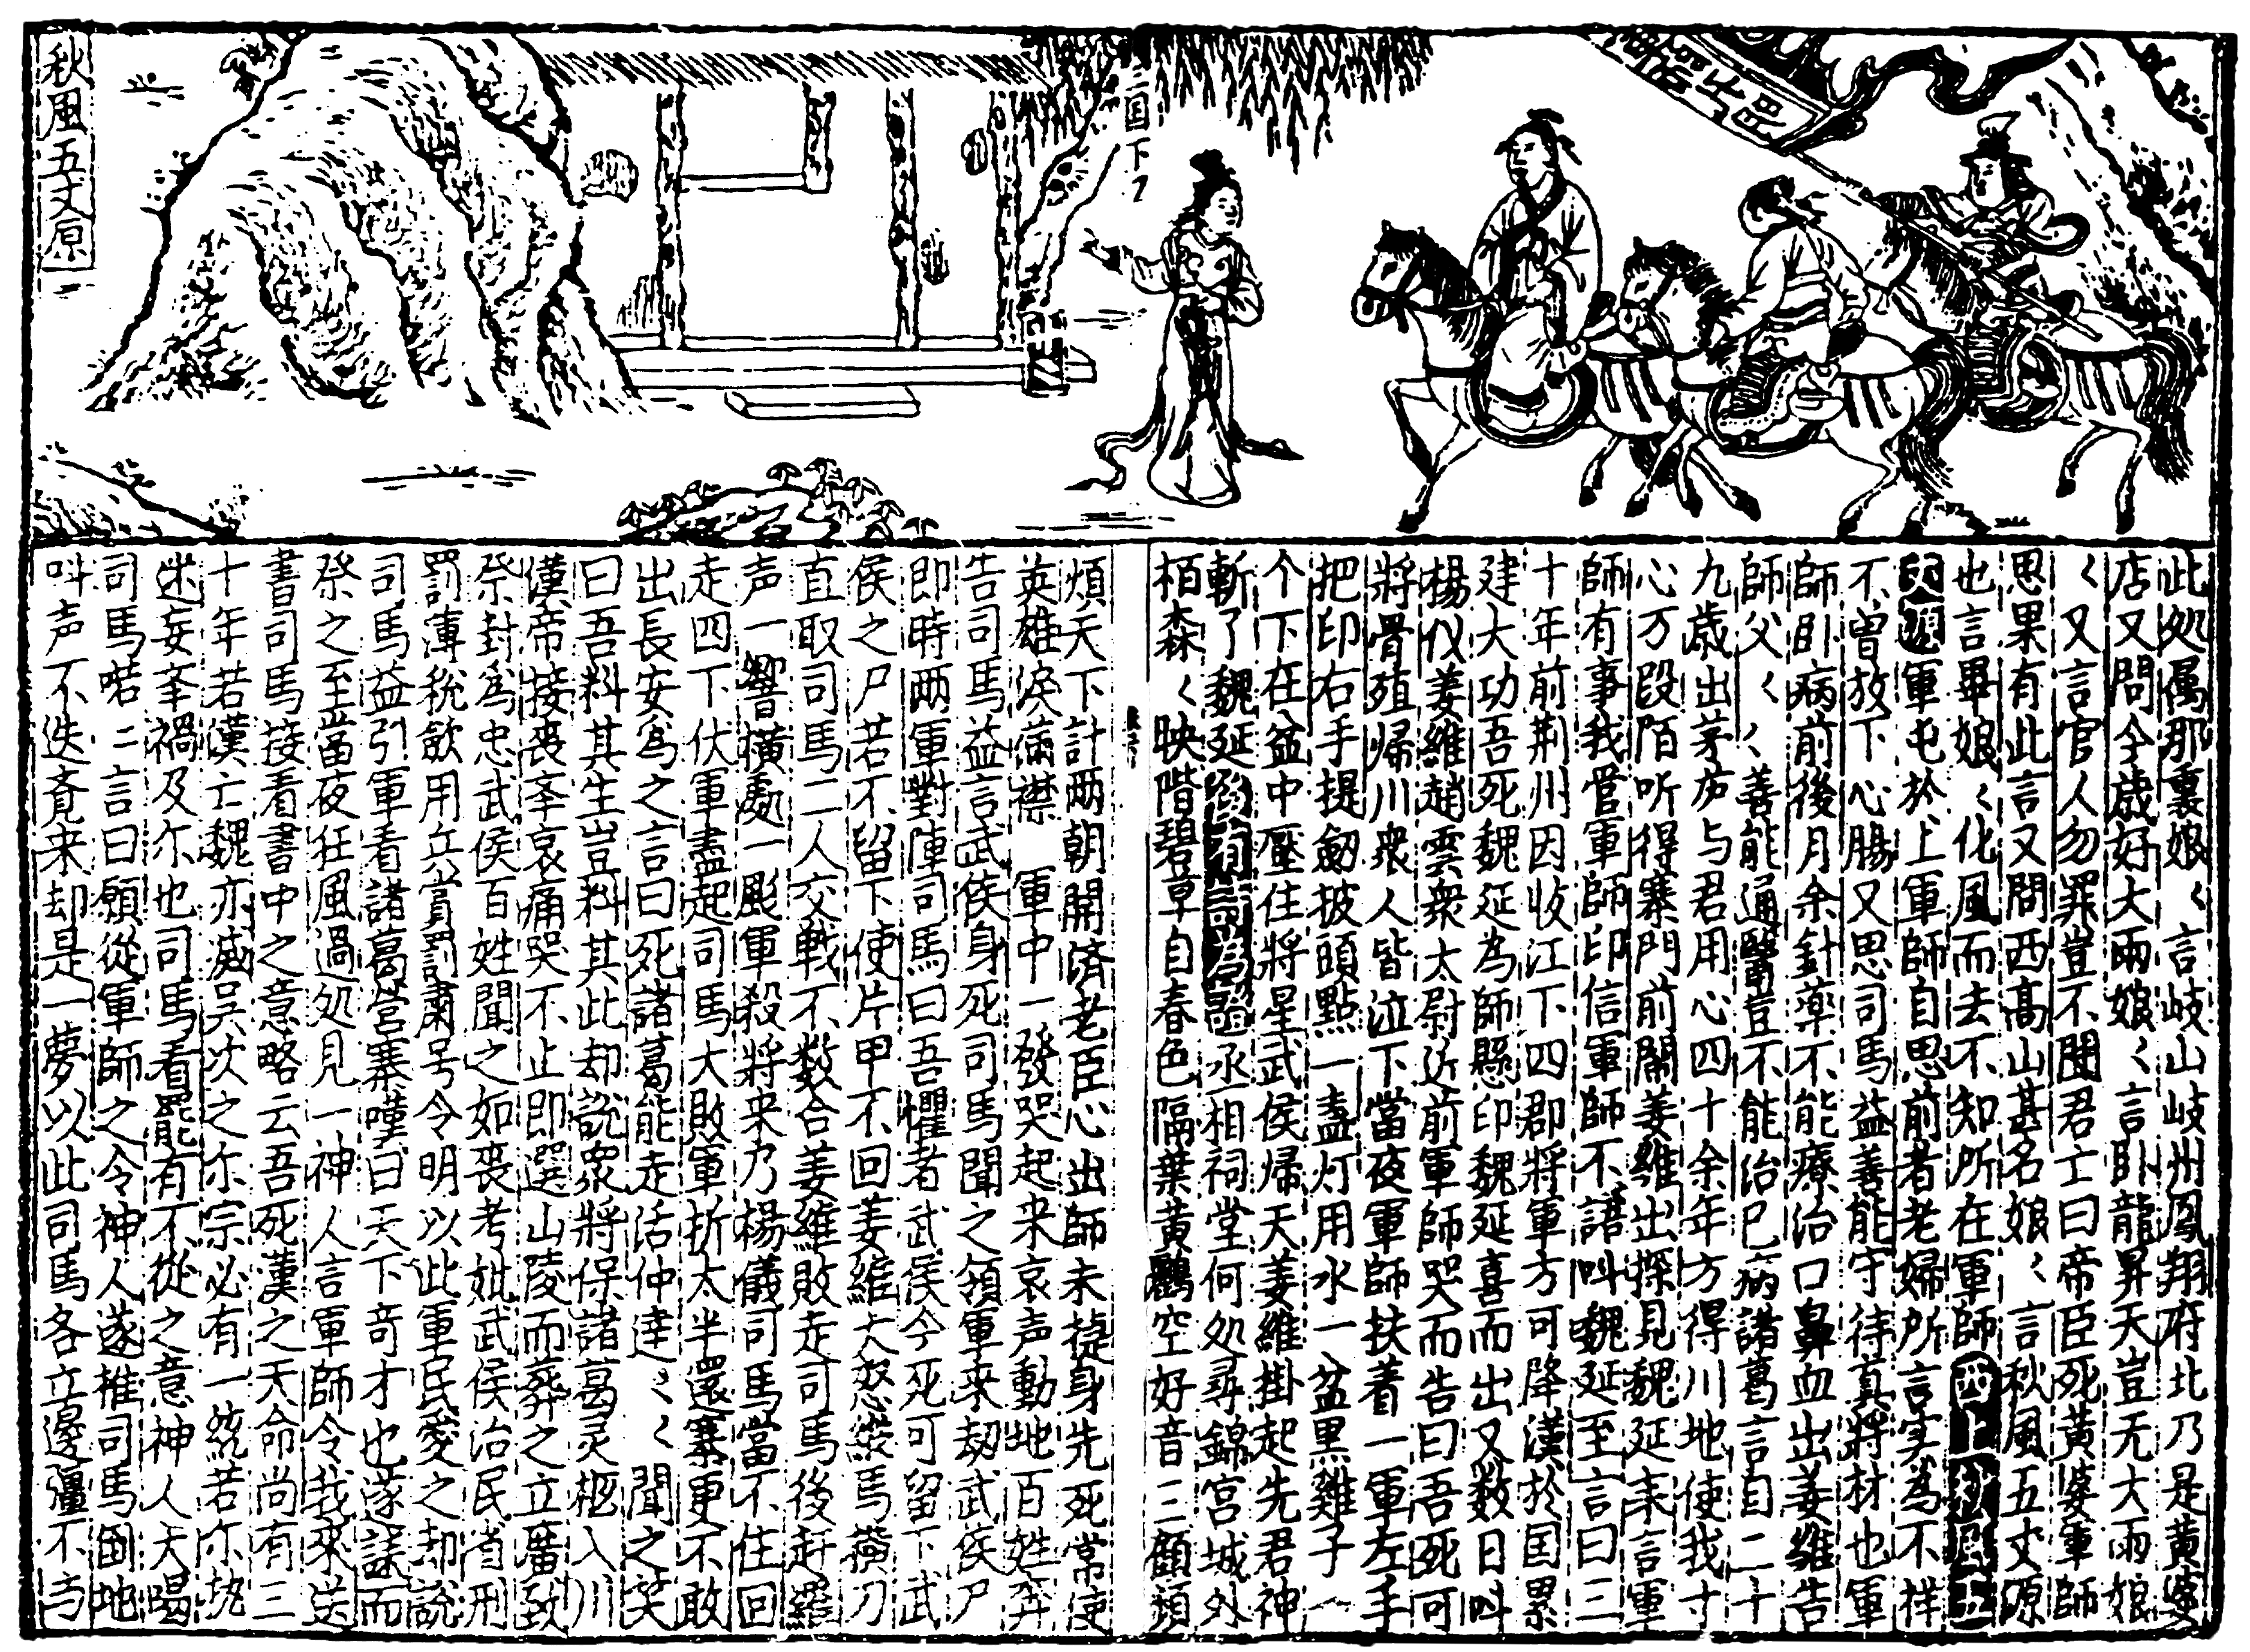 秋風五丈原
三国下
此処属那裏娘〻言岐山岐州鳳翔府北乃是黄婆
店又問今歳好大雨娘〻言卧龍昇天豈无大雨娘
〻又言官人勿罪豈不聞君亡曰帝臣死黄婆軍師
思果有此言又問西髙山甚名娘〻言秋風五丈源
也言畢娘〻化風而去不知所在軍師西上秋風五
丈原軍屯於上軍師自思前者老婦所言実為不祥
不曾放下心腸又思司馬益善能守待真將材也軍
師卧病前後月余針藥不能療治口鼻血出姜維告
師父〻〻善能通醫豈不能治已病諸葛言自二十
九歳出茅庐与君用心四十余年方得川地使我寸
心万段陌听得寨門前閙姜維出探見魏延来言軍
師有事我管軍師印信軍師不諾叫魏延至言曰三
十年前荆州因收江下四郡將軍方可降漢於国累
建大功吾死魏延為師懸印魏延喜而出又数日叫
楊仪姜維趙雲衆太尉近前軍師哭而告曰吾死可
將骨殖帰川衆人皆泣下當夜軍師扶着一軍左手
把印右手提劒披頭點一盞灯用水一盆黒雞子一
个下在盆中壓住將星武侯帰天姜維掛起先君神
斬了魏延後有詩為證丞相祠堂何処尋錦宫城外
栢森〻映階碧草自春色隔葉黄鸝空好音三顧頻
煩天下計两朝開済老臣心出師未㨗身先死常使
英雄淚満襟　軍中一發哭起来哀声動地百姓奔
告司馬益言武侯身死司馬聞之領軍来刼武侯尸
即時两軍對陣司馬曰吾懼者武侯今死可留下武
侯之尸若不留下使片甲不回姜維大怒縱馬横刀
直取司馬二人交戰不数合姜維敗走司馬後赶羅
声一響横䖏一彪軍殺將来乃楊儀司馬當不住回
走四下伏軍盡起司馬大敗軍折太半還寨更不敢
出長安為之言曰死諸葛能走活仲達〻〻聞之笑
曰吾料其生豈料其此却説衆將保諸葛灵柩入川
漢帝接喪奉哀痛哭不止即選山陵而葬之立廟致
祭封為忠武侯百姓聞之如喪考妣武侯治民省刑
罰薄税歛用兵賞罰肅号令明以此軍民愛之却説
司馬益引軍看諸葛营寨嘆曰天下竒才也遂謀而
祭之至當夜狂風過処見一神人言軍師令我來送
書司馬接看書中之意略云吾死漢之天命尚有三
十年若漢亡魏亦滅吴次之尓宗必有一統若尓执
迷妄奉禍及尓也司馬看罷有不從之意神人大喝
司馬喏〻言曰願從軍師之令神人遂推司馬倒地
叫声不迭覔来却是一夢以此司馬各立邊疆不与